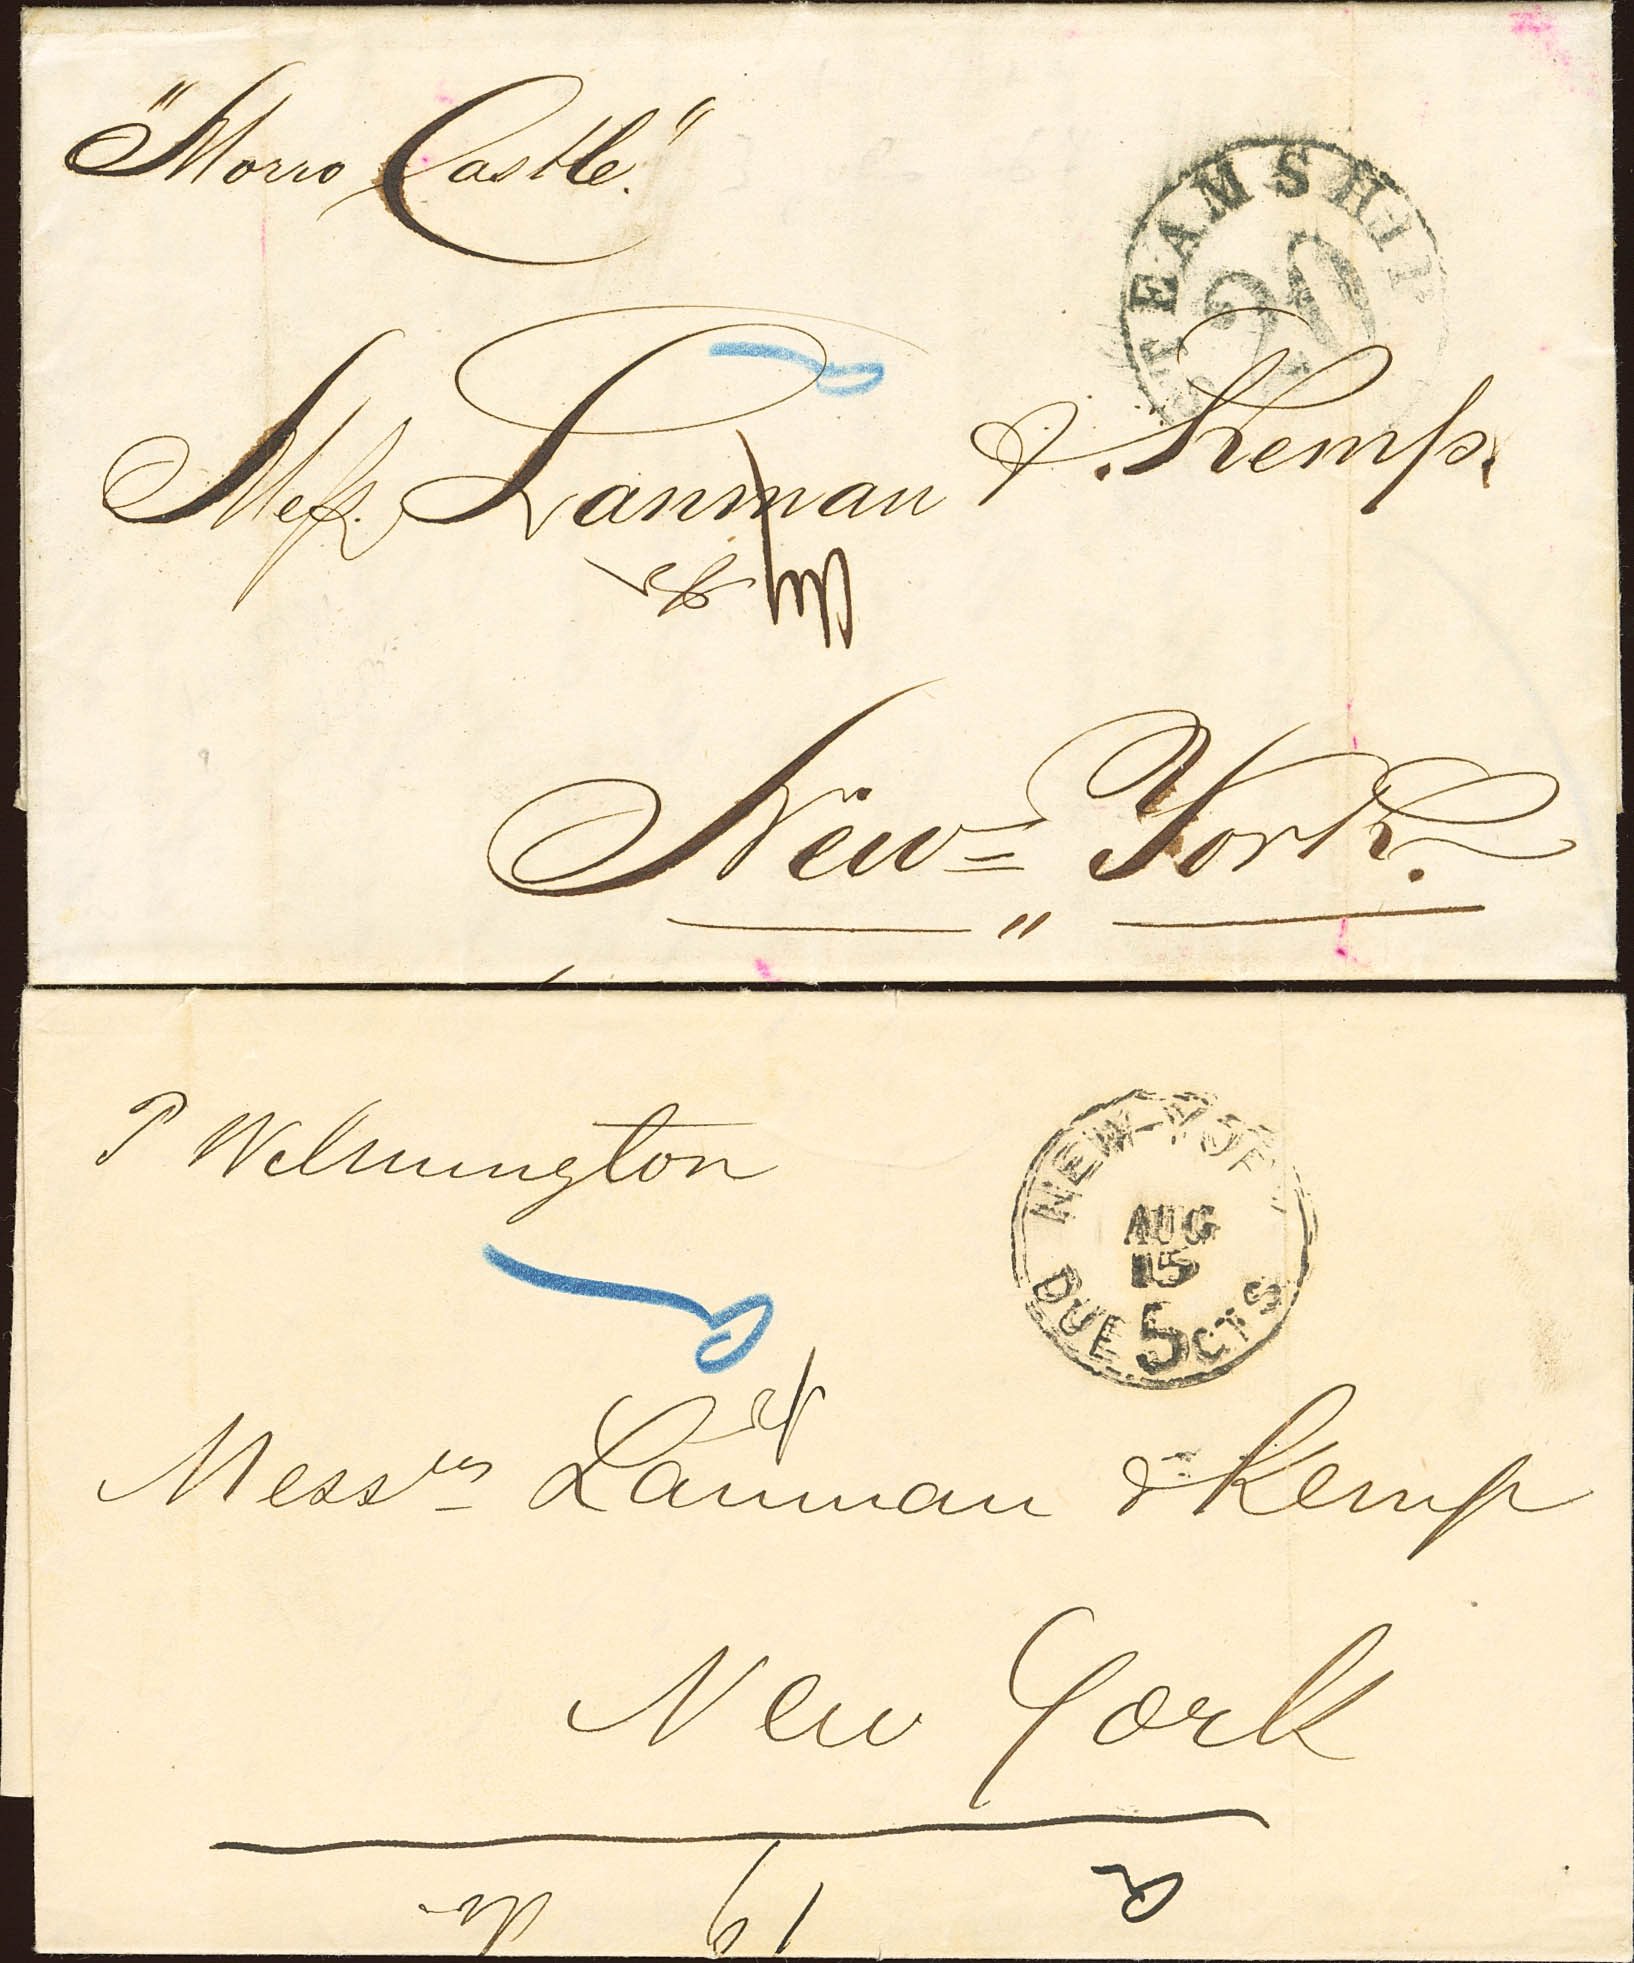 "Morro Castle."
STEAMSHIP
20
Mess. Lanman & Kemp.
New = York.
"
P Wilmington
NEW-YORK
AUG
15
DUE 5 CTS
Mess^rs Lanman & Kemp
New York